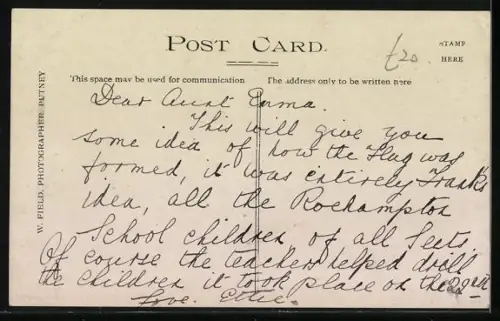 POST CARD.
£20
STAMP
HERE
This space may be used for communication
The address only to be written here
W. FIELD, PHOTOGRAPHER, PUTNEY
Dear Aunt Emma.
This will give you
some idea of how the Flag was
formed, it was entirely Frank's
idea, all the Roehampton
School children of all Sects.
Of course the teachers helped drill
the children it took place on the 22nd
Love. Ettie.